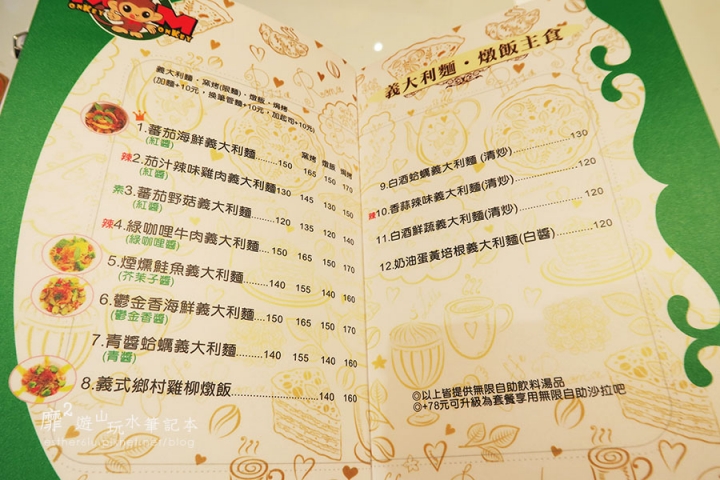 M
ONKEY
M
ONKEY
義大利麵・窯烤(限麵)・燉飯・焗烤
(加麵+10元，換筆管麵+10元，加起司+10元)
窯烤 燉飯 焗烤
1.蕃茄海鮮義大利麵........150 165 150 170
(紅醬)
辣2.茄汁辣味雞肉義大利麵130 145 130 150
(紅醬)
素3.蕃茄野菇義大利麵........120 135 120 140
(紅醬)
辣4.綠咖哩牛肉義大利麵....150 165 150 170
(綠咖哩醬)
5.煙燻鮭魚義大利麵........140 155 140 160
(芥茉子醬)
6.鬱金香海鮮義大利麵....150 165 150 170
(鬱金香醬)
7.青醬蛤蠣義大利麵........140 155 140 160
(青醬)
8.義式鄉村雞柳燉飯........ 140 160
靡²遊山玩水筆記本
義大利麵・燉飯主食
9.白酒蛤蠣義大利麵(清炒)............130
辣10.香蒜辣味義大利麵(清炒)............120
11.白酒鮮蔬義大利麵(清炒)............120
12.奶油蛋黃培根義大利麵(白醬)........120
◎以上皆提供無限自助飲料湯品
◎+78元可升級為套餐享用無限自助沙拉吧